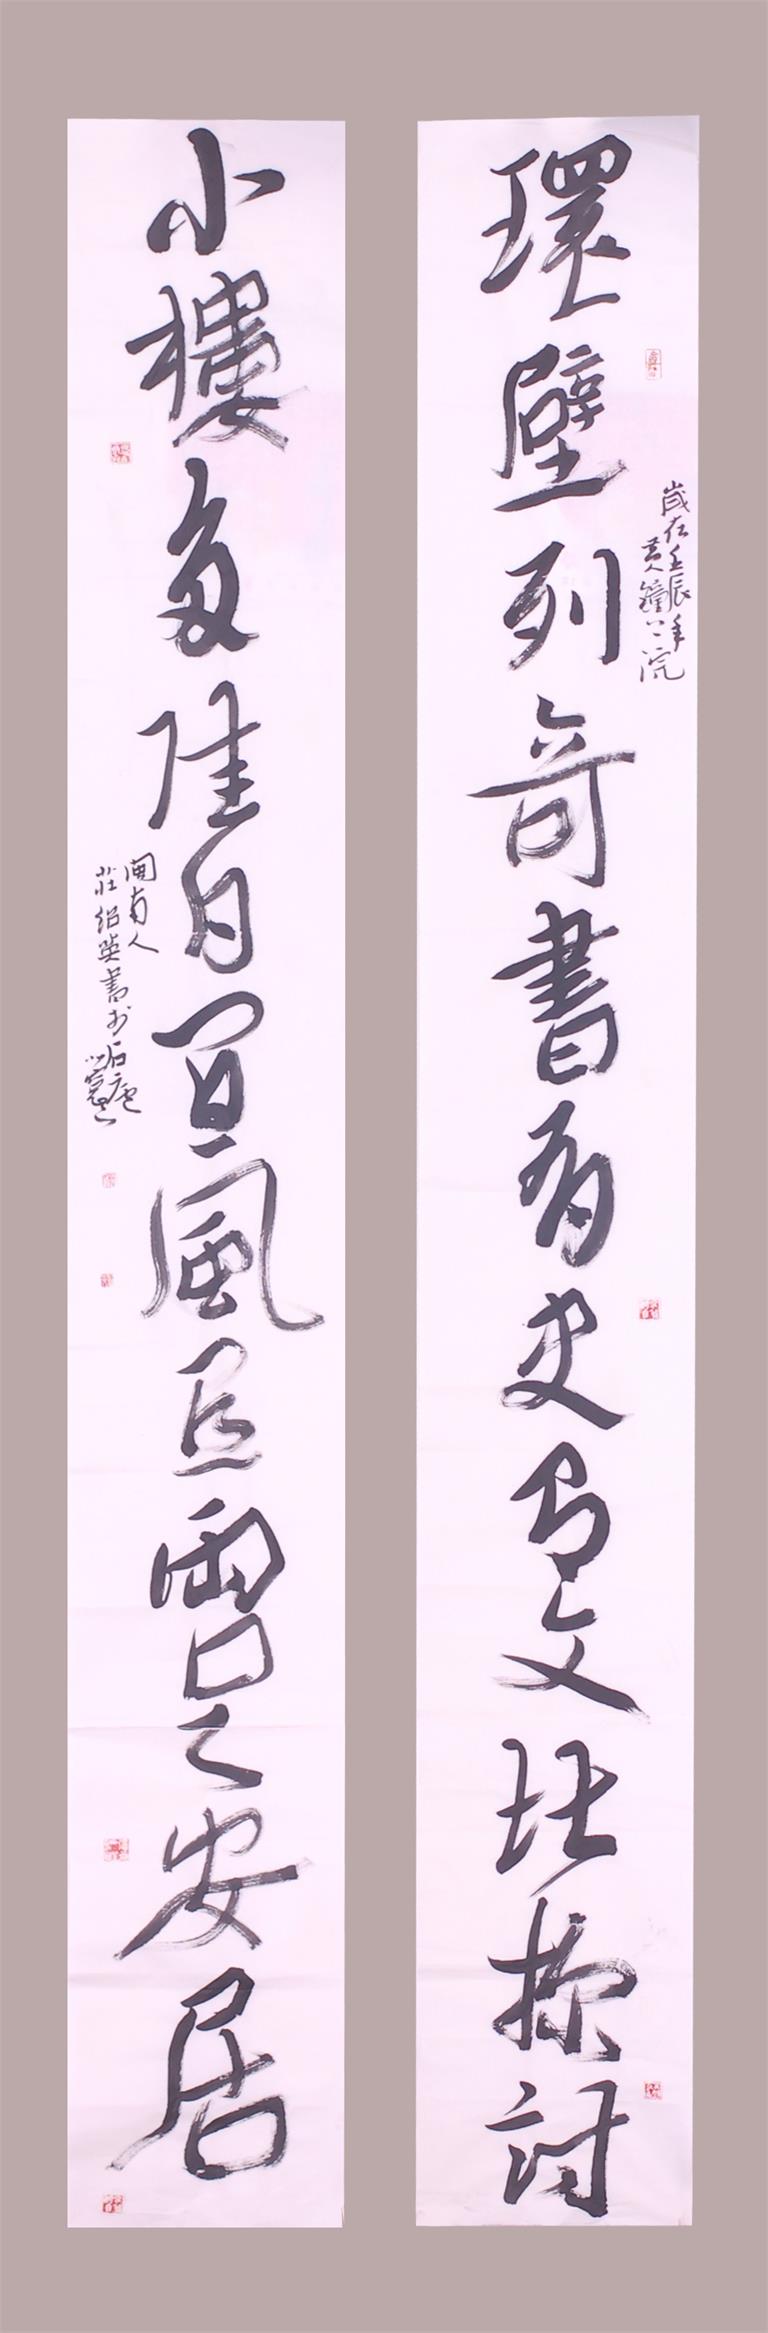 環壁列奇書有史有文堪探討
歲在壬辰年
黃鐘
小樓多佳日宜風宜雨足安居
閩南人
莊紹英書於石廬